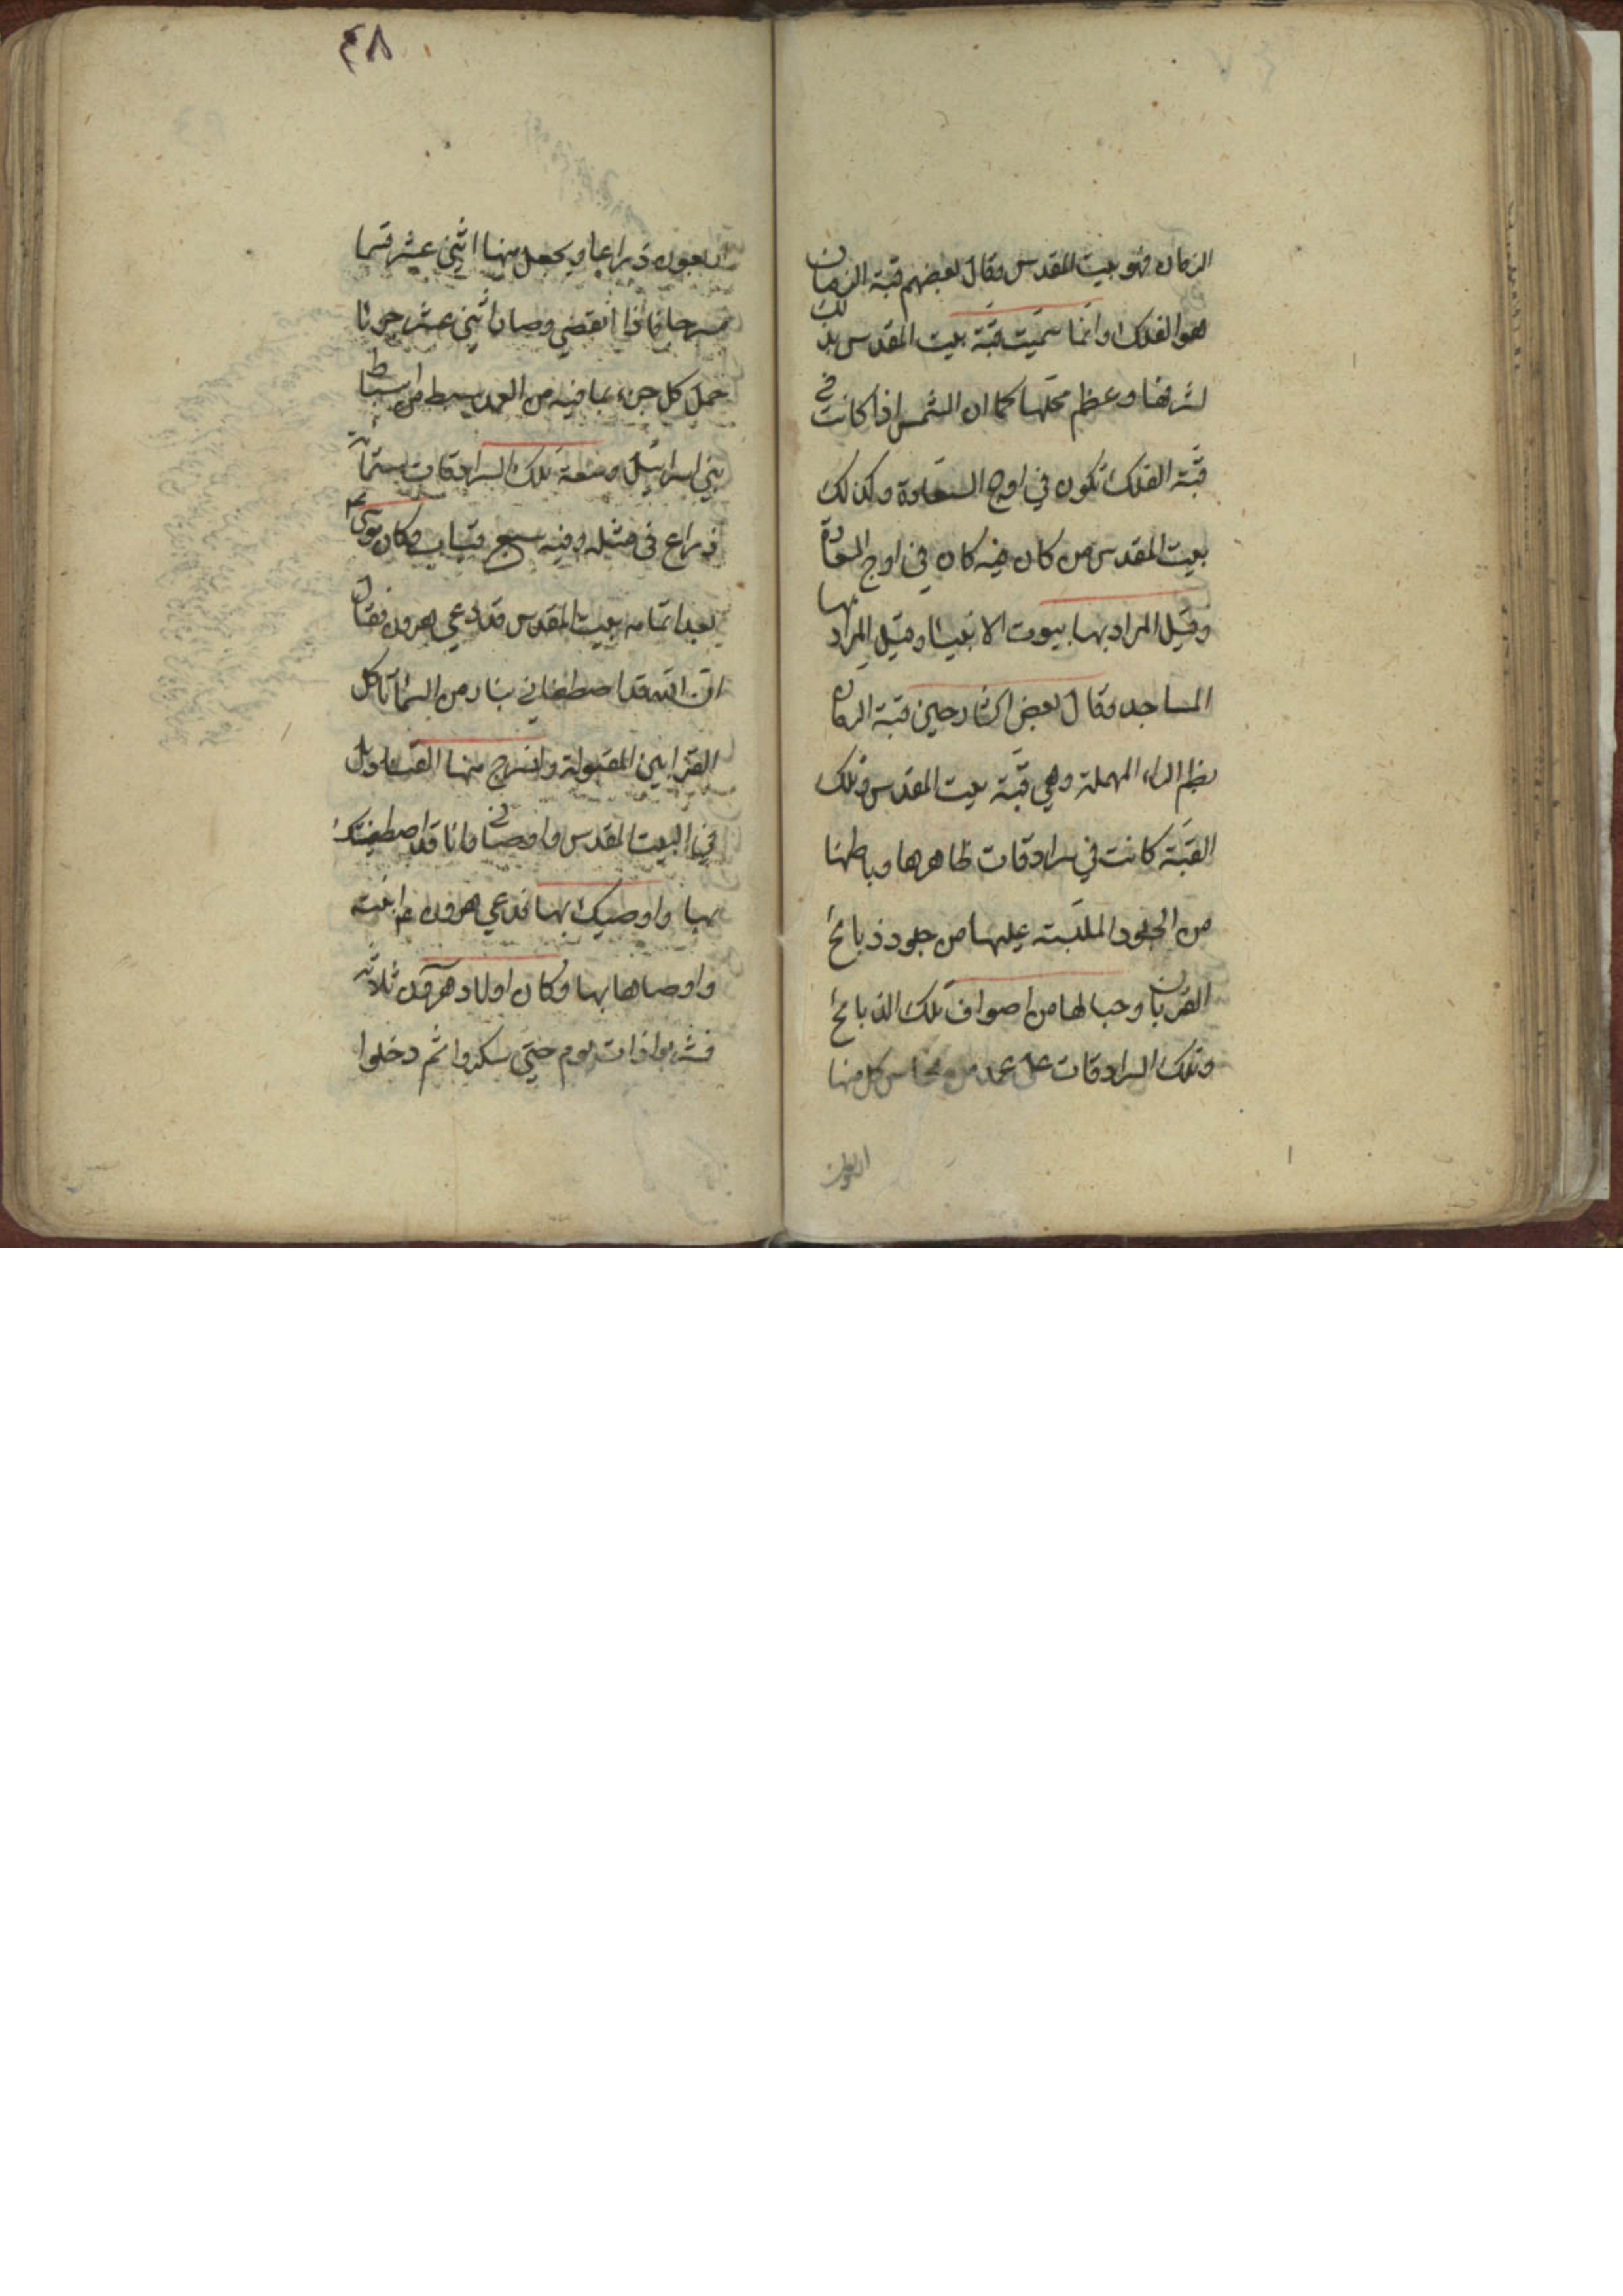 الزمان فهو بيت المقدس وقال بعضهم قبة الزمان
هو الفلك وانما سميت قبة بيت المقدس بذلك
لشرفها وعظم محلها كما ان الشمس اذا كانت في
قبة الفلك تكون في اوج السعادة وكذلك
بيت المقدس من كان فيه كان في اوج السعادة
وقيل المراد بها بيوت الانبيا وقيل المراد بها
المساجد وقال بعض الشارحين قبة الرمان
بضم الراء المهملة وهي قبة بيت المقدس وتلك
القبة كانت في سرادقات ظاهرها وباطنها
من الجلود الملبسة عليها من جلود ذبائح
القربان وحبالها من اصواف تلك الذبائح
وتلك السرادقات على عمد من نحاس كل منها
اربعون
٤٨
اربعون ذراعا ويجعل منها اثني عشر قسما
فاذا انقضى وصار اثني عشر جزئا
حمل كل جزء بما فيه من العمد سبط من اسباط
بني اسرائيل وسعة تلك السرادقات ستمائة
ذراع في مثله وفيه سبع قباب وكان موسى
بعد اتمامه بيت المقدس قد دعى هرون فقال
ان الله قد اصطفاني بنار من السما تاكل
القرابين المقبولة واسرج منها القناديل
في البيت المقدس واوصاني وانا قد اصطفيتك
بها واوصيك بها فدعى هرون ابنيه
واوصاهما بها وكان اولاد هرون ثلاثة
فشربوا ذات يوم حتى سكروا ثم دخلوا